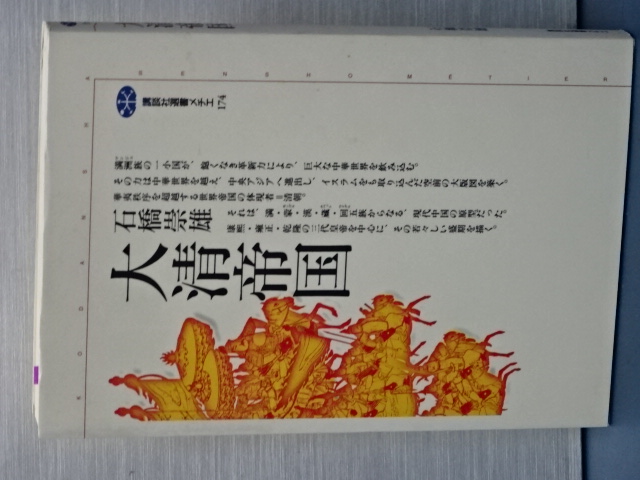 講談社選書メチエ
174
満洲族の一小国が、飽くなき革新力により、巨大な中華世界を飲み込む。
その力は中華世界を越え、中央アジアへ進出し、イスラムをも取り込んだ空前の大版図を築く。
華夷秩序を超越する世界帝国の体現者=清朝。
それは、満・蒙・漢・蔵・回五族からなる、現代中国の原型だった。
康熙・雍正・乾隆の三代皇帝を中心に、その若々しい盛期を描く。
石橋崇雄
大清帝国